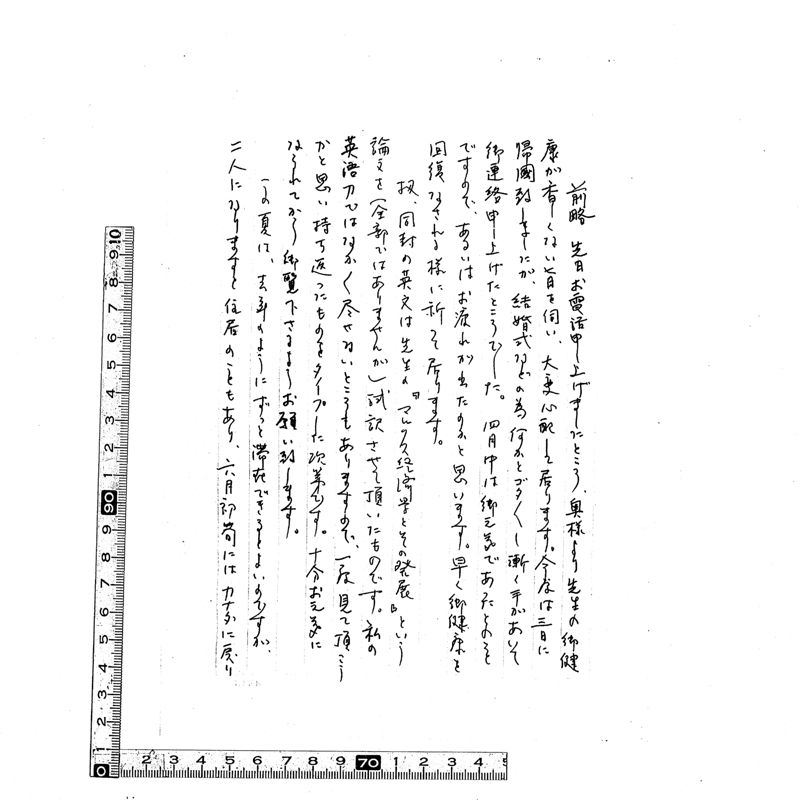 前略 先日お電話申上げましたところ、奥様より先生の御健
康が香しくない旨を伺い、大変心配して居ります。今度は三日に
帰國致しましたが、結婚式などの為何かとゴタ〱し漸く手があいて
御連絡申上げたところでした。四月中は御元気であったとのこと
ですので、あるいはお疲れが出たのかと思います。早く御健康を
回復なされる様に祈って居ります。
扨、同封の英文は先生の『マルクス経済学とその発展』という
論文を(全部ではありませんが)試訳させて頂いたものです。私の
英語力ではなか〱尽せないところもありますので、一度見て頂こう
かと思い持ち返ったものをタイプした次第です。十分お元気に
なられてから御覧下さるようお願い致します。
この夏は、去年のようにずっと滞在できるとよいのですが、
二人になりますと住居のこともあり、六月初旬にはカナダに戻り
0 1 2 3 4 5 6 7 8 9 90 1 2 3 4 5 6 7 8 9 10
2 3 4 5 6 7 8 9 70 1 2 3 4 5